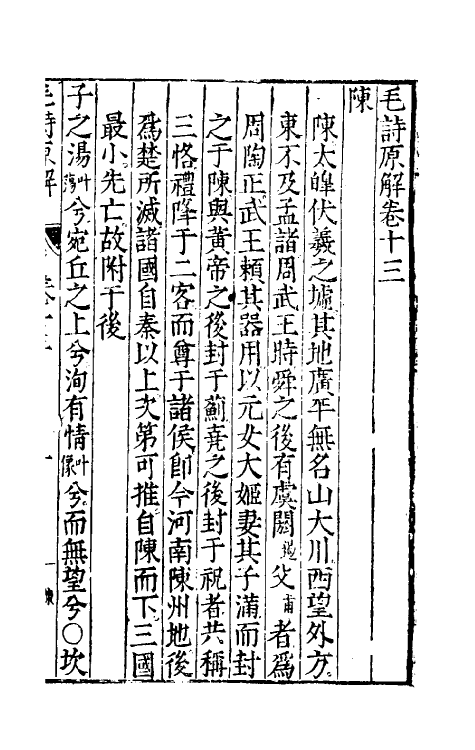 毛詩原解卷十三
陳
陳太皡伏羲之墟其地廣平無名山大川西望外方
東不及孟諸周武王時舜之後有虞閼遏父甫者為
周陶正武王賴其器用以元女大姬妻其子滿而封
之于陳與黃帝之後封于薊堯之後封于祝者共稱
三恪禮降于二客而尊于諸侯卽今河南陳州地後
爲楚所滅諸國自秦以上次第可推自陳而下三國
最小先亡故附于後
子之湯叶蕩兮宛丘之上兮洵有情叶像兮而無望兮○坎
毛詩原解 卷十三 一 陳